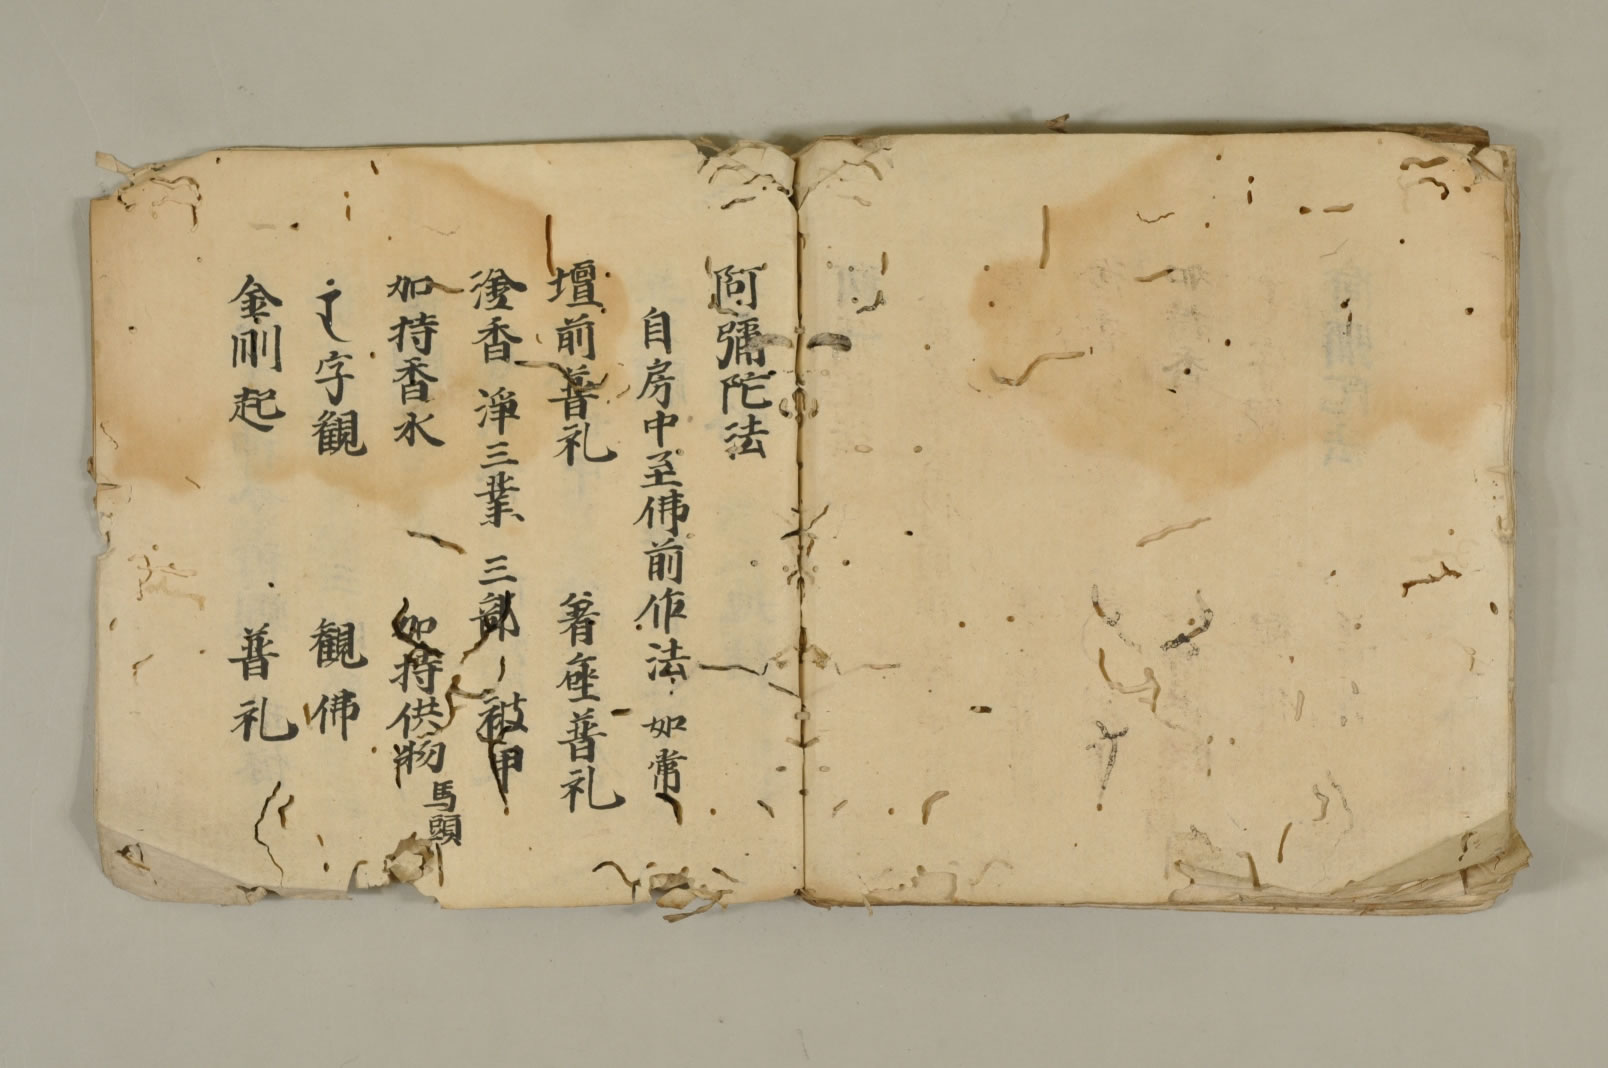 阿彌陀法
自房中至佛前作法如常
壇前普礼　着座普礼
塗香　淨三業　三部　被甲
加持香水　加持供物馬頭
字観　観佛
金剛起　普礼